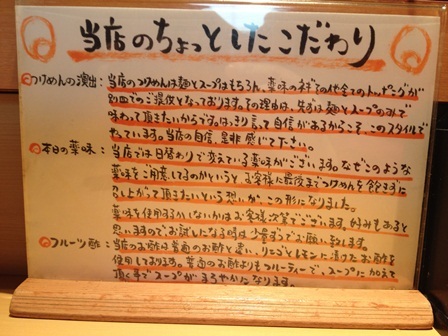 当店のちょっとしたこだわり
つけめんの演出：当店のつけめんは麺とスープはもちろん、薬味の
全てのトッピングが
別皿でのご提供となっております。その理由は、先ずは麺とスープのみで
味わって頂きたいからです。はっきり言って自信があるからこそ、このスタイルで
やっています。当店の自信、是非感じて下さい。
本日の薬味：当店では日替わりで変えている薬味がございます。なぜこのような
薬味をご用意してるのかというと、お客様に最後までつけめんを飽きずに
召し上がって頂きたいという想いが、この形になりました。
薬味を使用するかしないかはお客様次第でございます。好みもあると
思いますのでお試しになる時は少量ずつでお願い致します。
フルーツ酢：当店のお酢は普通のお酢と違い、りんごとレモンに漬けたお酢を
使用しております。普通のお酢よりもフルーティーで、スープに加えて
頂く事でスープがまろやかになります。